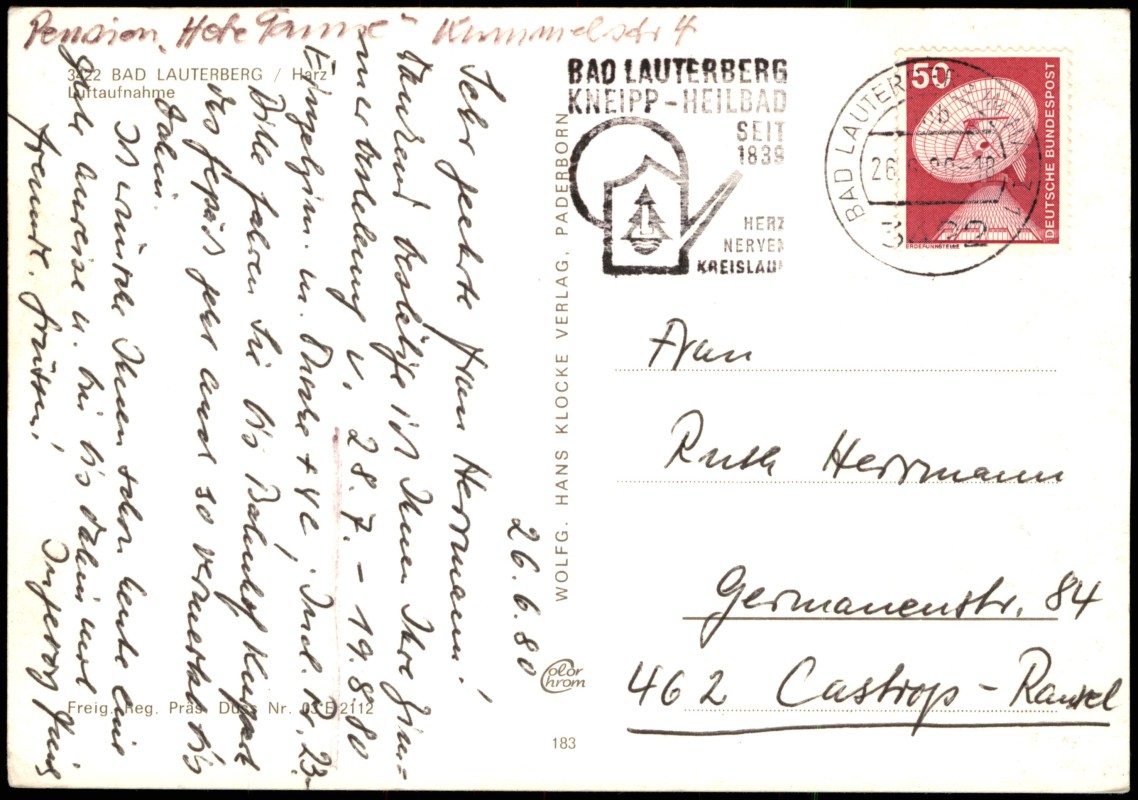 Pension "Hohe Tanne" Kummelstr 4
3422 BAD LAUTERBERG / Harz
Luftaufnahme
26.6.80
Sehr geehrte Frau Herrmann!
Dankend bestätige ich Ihnen Ihre Zim-
merbestellung v. 28.7. - 19.8.80
Einzelzim. m. Dusche + WC, Incl. Pr. 23.-
Bitte fahren Sie bis Bahnhof Kurpark
das Gepäck geht auch so vermerkt bis
dahin.
Ich wünsche Ihnen schon heute eine
gute Anreise u. bin bis dahin mit
freundl. Grüssen!
Freig. Reg. Präs. Duss Nr. 03 E 2112
WOLFG. HANS KLOCKE VERLAG, PADERBORN
Color Chrom
183
BAD LAUTERBERG
KNEIPP-HEILBAD
SEIT
1839
HERZ
NERVEN
KREISLAU
BAD LAUTER
26.
3422
50
DEUTSCHE BUNDESPOST
ERDEFUNKSTELLE
Frau
Ruth Herrmann
Germanenstr. 84
462 Castrop-Rauxel